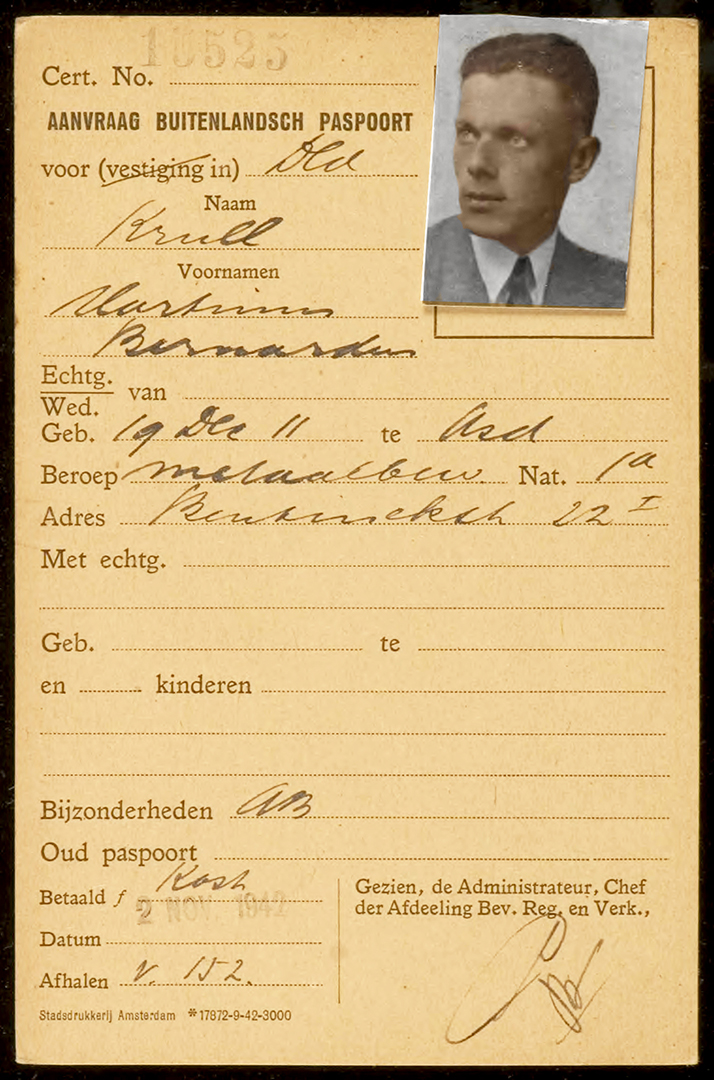 10525
Cert. No.
AANVRAAG BUITENLANDSCH PASPOORT
voor (vestiging in) Dld
Naam
Krull
Voornamen
Martinus
Bernardus
Echtg.
Wed. van
Geb. 19 Dec 11 te Asd
Beroep metaalbew. Nat. 1a
Adres Bentinckstr 22 I
Met echtg.
Geb. te
en kinderen
Bijzonderheden AB
Oud paspoort
Betaald f Kost
2 NOV. 1942
Datum
Afhalen v. 152.
Gezien, de Administrateur, Chef
der Afdeeling Bev. Reg. en Verk.,
Stadsdrukkerij Amsterdam *17872-9-42-3000